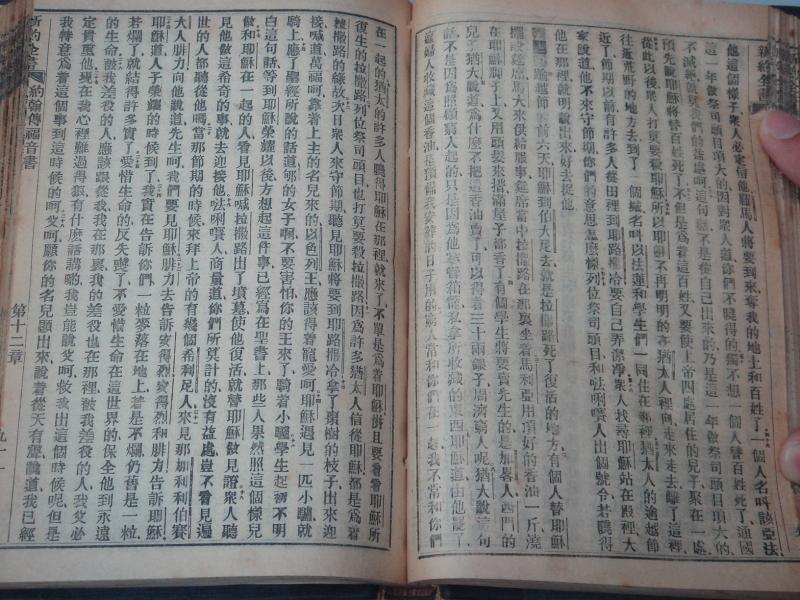 他這個樣子眾人必定信他羅馬人將要到來奪我的地土和百姓了一個人名叫該亞法
這一年做祭司頭目大的因對眾人道你們不曉得的獨不想一個人替百姓死了通國
不滅絕就是我們的益處呵這句話不是從自己出來的乃是這一年做祭司頭目大的
預先說耶穌將替百姓死了不但是為着這百姓又要使上帝四處居住的兒子聚在一處
從此以後眾人打算要殺耶穌所以耶穌不再明明的在猶太人裡向走來走去離了這裡
往近荒野的地方去到了一個城名叫以法蓮和學生們一同住在那裡猶太人的逾越節
近了節期以前有許多人從田裡到耶路撒冷要自己弄潔淨眾人找尋耶穌站在殿裡大
家說道他不來守節期你們的意思怎麼樣列位祭司頭目和㳒唎賽人出個號令若曉得
他在那裡就明說出來好去捉他
逾越節的前六天耶穌到伯大尼去就是拉撒路死了復活的地方有個人替耶穌
擺設筵席馬大來供給服事筵席當中拉撒路在那裏坐着馬利亞用頂好的香油一斤澆
在耶穌脚子上又用頭髮來揩滿屋子都香了有個學生將要賣先生的是加畧人西門的
兒子猶大說道為什麽不把這香油賣了可以得着三十兩銀子周濟窮人呢猶大說這句
話不是因為照顧窮人起的只是因為他要偷管箱籠私拿所收藏的東西耶穌道由他罷了
這婦人收藏這個香油是預備我安葬的日子用的窮人常和你們在一起我不常和你們
在一起的猶太的許多人聽得耶穌在那裡就來了不單是為着耶穌併且要看看耶穌所
復生的拉撒路列位祭司頭目也打算要殺拉撒路因為許多猶太人信從耶穌都是為着
拉撒路的緣故次日眾人來守節期聽見耶穌將要到耶路撒冷拿了棗樹的枝子出來迎
接喊道萬福呵靠着上主的名兒來的以色列王應該得着寵愛呵耶穌遇見一匹小驢
騎上應了聖經所說的話道郇的女子啊不要害怕你的王來了騎着小驢學生起初不明
白這句話等到耶穌榮耀以後方想起這件事已經寫在聖書上那些人果然照這個樣兒
做和耶穌在一起的人看見耶穌喊拉撒路出了墳墓使他復活就替耶穌做見證眾人聽
見他做這希奇的事就去迎接他㳒唎賽人商量道你們所算計的沒有益處豈不看見遍
世的人都聽從他嗎當那節期的時候來拜上帝的有幾個希利尼人來見那加利利伯賽
大人腓力向他說道先生呵我們要見耶穌腓力去告訴安得烈安得烈和腓力告訴耶穌
耶穌道人子榮耀的時候到了我實在告訴你們一粒麥落在地上若是不爛仍舊是一粒
若爛了就結得許多實了愛惜生命的反失喪了不愛惜生命在這世界的保全他到永遠
的生命做我差役的人應該跟從我我在那裏我的差役也在那裡做我差役的人我父必
定貴重他現在我心裡難過得狠有什麽話講喲我豈能說父呵救我出這個時候呢但是
我特意為着這個事到這時候的呵父呵願你的名兒顯出來說着從天有聲說道我已經
新約全書
約翰傳福音書
第十二章